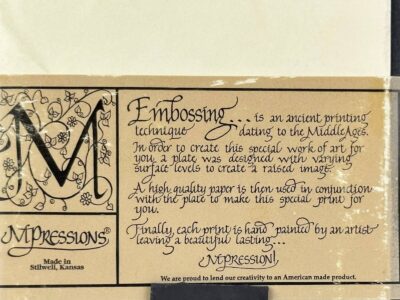 M
MPRESSIONS®
Made in
Stilwell, Kansas
Embossing... is an ancient printing
technique dating to the Middle Ages.
In order to create this special work of art for
you, a plate was designed with varying
surface levels to create a raised image.
A high quality paper is then used in conjunction
with the plate to make this special print for
you.
Finally, each print is hand painted by an artist
leaving a beautiful lasting...
MPRESSION!
We are proud to lend our creativity to an American made product.